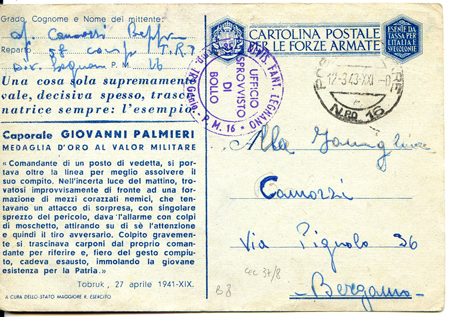 Grado, Cognome e Nome del mittente:
Camozzi Beppe
Reparto 58 comp. T.R.T.
Div. Legnano P. M. 16
Una cosa sola supremamente
vale, decisiva spesso, trasci-
natrice sempre: l'esempio
Caporale GIOVANNI PALMIERI
MEDAGLIA D'ORO AL VALOR MILITARE
« Comandante di un posto di vedetta, si por-
tava oltre la linea per meglio assolvere il
suo compito. Nell'incerta luce del mattino, tro-
vatosi improvvisamente di fronte ad una for-
mazione di mezzi corazzati nemici, che ten-
tavano un attacco di sorpresa, con singolare
sprezzo del pericolo, dava l'allarme con colpi
di moschetto, attirando su di sè l'attenzione
e quindi il tiro avversario. Colpito gravemen-
te si trascinava carponi dal proprio coman-
dante per riferire e, fiero del gesto compiu-
to, cadeva esausto, immolando la giovane
esistenza per la Patria ».
Tobruk, 27 aprile 1941-XIX.
A CURA DELLO STATO MAGGIORE R. ESERCITO
CARTOLINA POSTALE
PER LE FORZE ARMATE
ESENTE DA
TASSA PER
L'ITALIA E
SUE COLONIE
DIVIS. FANT. LEGNANO
P. M. 16
UFFICIO
SPROVVISTO
DI
BOLLO
12·3·43·XXI
N.RO 16
Alla Famiglia
Camozzi
Via Pignolo 36
Bergamo